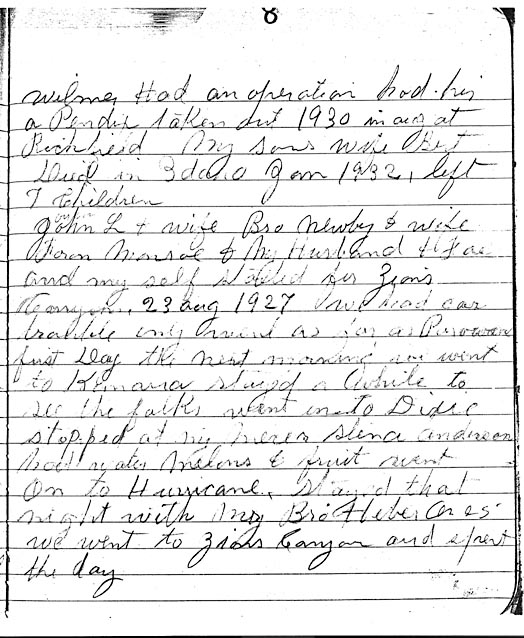 8
wilmer Had an operation had his
a Pendix taken out 1930 in aug at
Richfield My sons wife Bert
Died in Idaho Jan 1932, left
7 Children
John L & wife Bro Newby & wife
From Monroe & My Husband &
and my self started for Zions
Canyon, 23 aug 1927 we had car
trouble only went as far as Parowan
first Day the next morning we went
to Kanarra stayed a while to
see the folks went in to Dixie
stopped at my Stena anderson
had water melons & fruit went
On to Hurricane, stayed that
night with My Bro Heber
we went to Zions Canyon and spent
the day